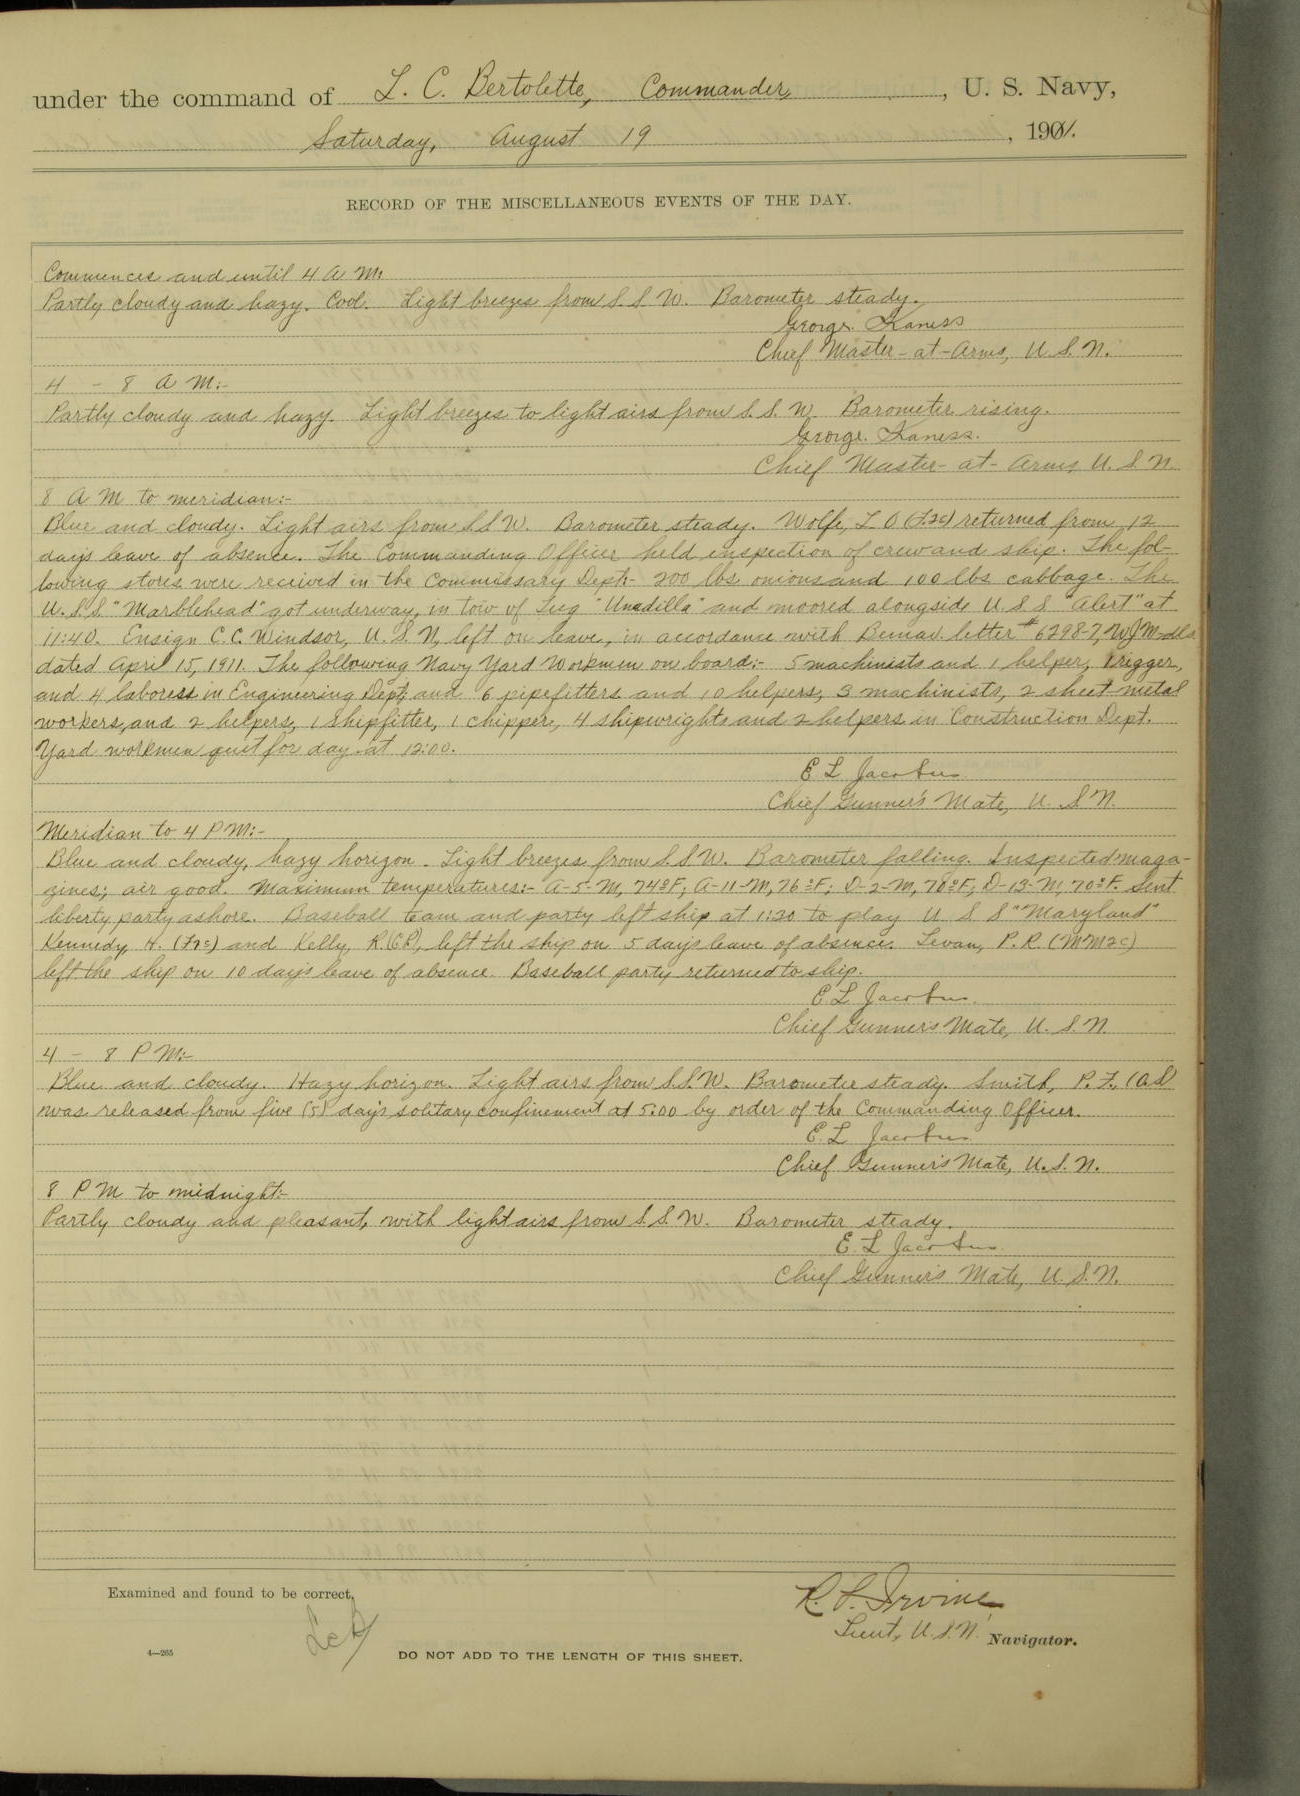 under the command of L. C. Bertolette, Commander, U. S. Navy,
Saturday, August 19, 1901.
RECORD OF THE MISCELLANEOUS EVENTS OF THE DAY.
Commences and until 4 A M:
Partly cloudy and hazy. Cool. Light breezes from S. S. W. Barometer steady.
George. Kaness
Chief Master-at-Arms, U. S. N.
4 - 8 A M:-
Partly cloudy and hazy. Light breezes to light airs from S. S. W. Barometer rising.
George. Kaness.
Chief Master-at-Arms, U. S. N.
8 A M to meridian:-
Blue and cloudy. Light airs from S. S. W. Barometer steady. Wolfe, L O (F2c) returned from 12
days leave of absence. The Commanding Officer held inspection of crew and ship. The fol-
lowing stores were received in the Commissary Dept:- 200 lbs. onions and 100 lbs cabbage. The
U. S. S. "Marblehead" got underway, in tow of Tug "Unadilla" and moored alongside U. S. S. "Alert" at
11:40. Ensign C. C. Windsor, U. S. N, left on leave, in accordance with Bunav. letter #6298-7, WJM-dls
dated April 15, 1911. The following Navy Yard Workmen on board:- 5 machinists and 1 helper, 1 rigger,
and 4 laborers in Engineering Dept; and 6 pipefitters and 10 helpers, 3 machinists, 2 sheet metal
workers, and 2 helpers, 1 shipfitter, 1 chipper, 4 shipwrights and 2 helpers in Construction Dept.
Yard workmen quit for day at 12:00.
E L Jacobus
Chief Gunner's Mate, U. S. N.
Meridian to 4 P M:-
Blue and cloudy, hazy horizon. Light breezes from S. S. W. Barometer falling. Inspected maga-
zines; air good. Maximum temperatures:- A-5-M, 74°F; A-11-M, 76°F; D-2-M, 78°F; D-13-M, 70°F. Sent
liberty party ashore. Baseball team and party left ship at 1:20 to play U S S "Maryland"
Kennedy, H. (F1c) and Kelly, R. (CP), left the ship on 5 days leave of absence. Levan, P. R. (MM2c)
left the ship on 10 day's leave of absence. Baseball party returned to ship.
E. L. Jacobus.
Chief Gunner's Mate, U. S. N.
4 - 8 P M:-
Blue and cloudy. Hazy horizon. Light airs from S. S. W. Barometer steady. Smith, P. F., (AS)
was released from five (5) day's solitary confinement at 5:00 by order of the Commanding Officer.
E. L Jacobus
Chief Gunner's Mate, U. S. N.
8 P M to midnight:-
Partly cloudy and pleasant, with light airs from S. S. W. Barometer steady.
E. L Jacobus.
Chief Gunner's Mate, U. S. N.
Examined and found to be correct,
LCB
R. L. Irvine
Lieut, U. S. N. Navigator.
4—265
DO NOT ADD TO THE LENGTH OF THIS SHEET.